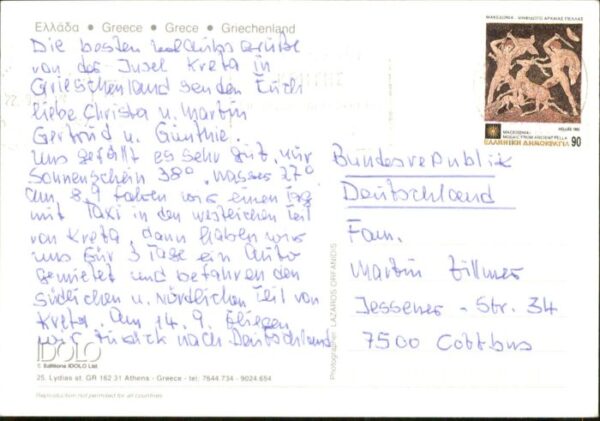 Ελλάδα • Greece • Grece • Griechenland
Die besten Urlaubsgrüße
von der Insel Kreta in
Griechenland senden Euch
liebe Christa u. Martin
Gertrud u. Günthie.
uns gefällt es sehr gut, nur
Sonnenschein 38°, Wasser 27°
am 8.9 fahren wir einen Tag
mit Taxi in den westlichen Teil
von Kreta, dann haben wir
uns für 3 Tage ein Auto
gemietet und befahren den
südlichen u. Nördlichen Teil von
Kreta. Am 14.9. fliegen
wir zurück nach Deutschland
IDOLO
© Editions IDOLO Ltd.
25, Lydias st. GR 162 31 Athens - Greece - tel. 7644.734 - 9024.654
Reproduction not permitted for all countries
Photographer: LAZAROS ORFANIDIS
ΜΑΚΕΔΟΝΙΑ - ΨΗΦΙΔΩΤΟ ΑΡΧΑΙΑΣ ΠΕΛΛΑΣ
HELLAS 1992
MACEDONIA-
MOSAIC FROM ANCIENT PELLA
ΕΛΛΗΝΙΚΗ ΔΗΜΟΚΡΑΤΙΑ 90
Bundesrepublik
Deutschland
Fam.
Martin Zillmer
Jessener - Str. 34
7500 Cottbus